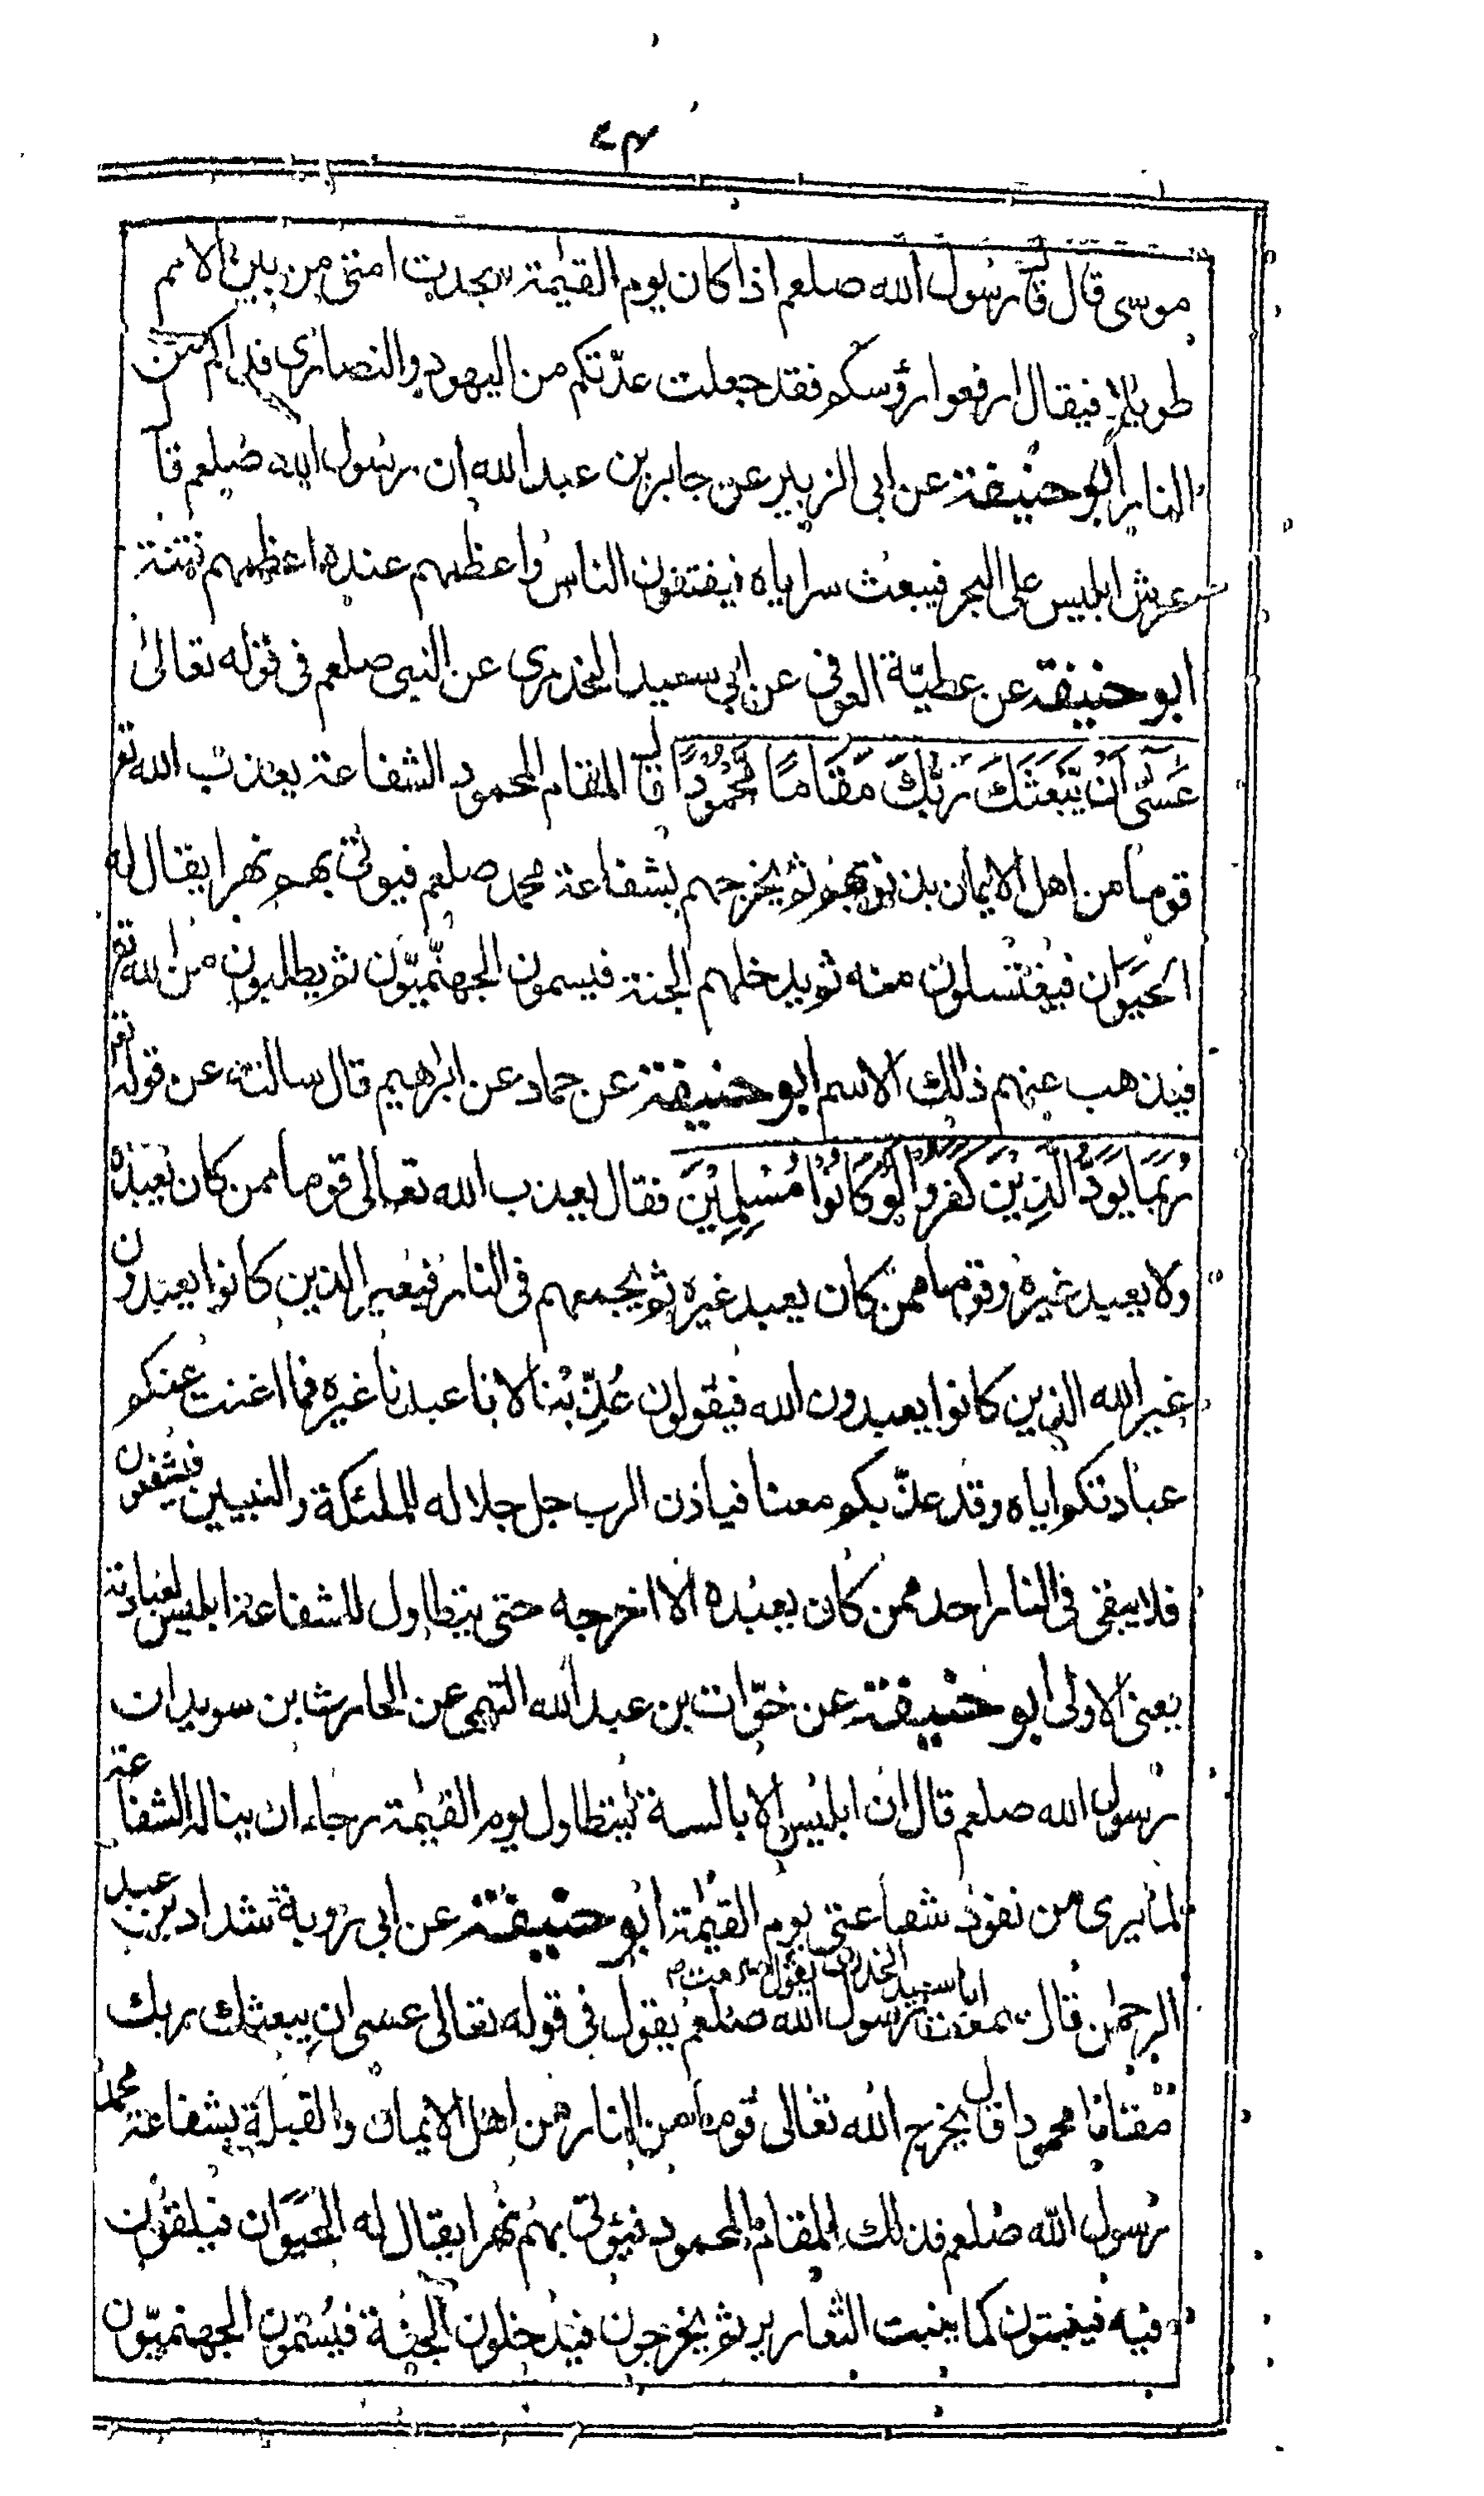 ٤٣
موسى قال قال رسول الله صلعم اذا كان يوم القيٰمة سجدت امتى من بين الامم
طويلا فيقال ارفعوا رؤسكم فقد جعلت عدّتكم من اليهود والنصارى فداكم من
النار ابو حنيفة عن ابى الزبير عن جابر بن عبد الله ان رسول الله صلعم قال
عرش ابليس على البحر فيبعث سراياه فيفتنون الناس واعظهم عنده اعظهم فتنة
ابو حنيفة عن عطيّة العوفى عن ابى سعيد الخدرى عن النبى صلعم فى قوله تعالىٰ
عَسٰٓى اَنْ يَّبْعَثَكَ رَبُّكَ مَقَامًا مَّحْمُوْدًا قال المقام المحمود الشفاعة يعذب الله تع
قوما من اهل الايمان بذنوبهم ثم يخرجهم بشفاعة محمد صلعم فيوتى بهم نهرا يقال له
الحَيَوان فيغتسلون منه ثم يدخلهم الجنة فيسمون الجهنّميّون ثم يطلبون من الله تع
فيذهب عنهم ذالك الاسم ابو حنيفة عن حماد عن ابراهيم قال سالته عن قوله تع
رُبَمَا يَوَدُّ الَّذِيْنَ كَفَرُوْا لَوْ كَانُوْا مُسْلِمِيْنَ فقال يعذب الله تعالى قوما ممن كان يعبده
ولا يعبد غيره وقوما ممن كان يعبد غيره ثم يجمعهم فى النار فيعير الذين كانوا يعبدون
غير الله الذين كانوا يعبدون الله فيقولون عُذِّبْنا لانا عبدنا غيره فما اغنت عنكم
عبادتكم اياه وقد عذّبكم معنا فياذن الرب جل جلاله للملئكة والنبيين فيشفعون
فلا يبقى فى النار احد ممن كان يعبده الا اخرجه حتى يتطاول للشفاعة ابليس لعبادته
يعنى الاولى ابو حنيفة عن خوّات بن عبد الله التيمى عن الحارث بن سويد ان
رسول الله صلعم قال ان ابليس الابالسة ليتطاول يوم القيٰمة رجاء ان يناله الشفاعة
لما يرى من نفوذ شفاعتى يوم القيٰمة ابو حنيفة عن ابى روبة شداد بن عبد
الرحمٰن قال سمعت ابا سعيد الخدرى يقول سمعت رسول الله صلعم يقول فى قوله تعالى عسى ان يبعثك ربك
مقاما محمودا قال يخرج الله تعالى قوما من النار من اهل الايمان والقبلة بشفاعة محمد
رسول الله صلعم فذلك المقام المحمود فيؤتى بهم نهرا يقال له الحَيَوَان فيلقون
فيه فينبتون كما ينبت الثعارير ثم يخرجون فيدخلون الجنة فيُسمّون الجهنميّون